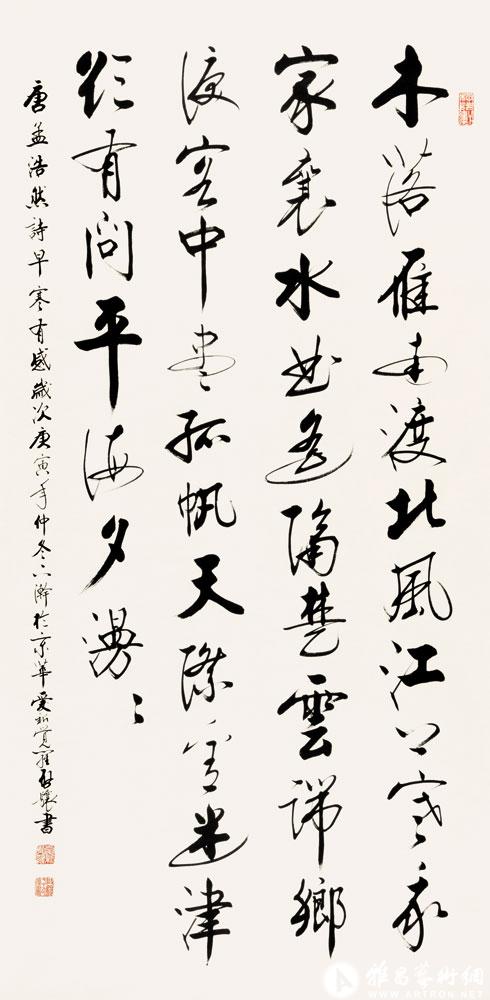 木落雁南渡北風江上寒我
家襄水曲遙隔楚雲端鄉
淚客中盡孤帆天際看迷津
欲有問平海夕漫〻
唐孟浩然詩早寒有感歲次庚寅年仲冬下澣於京華愛新覺羅啟驤書
雅昌藝術網
WWW.ARTRON.NET